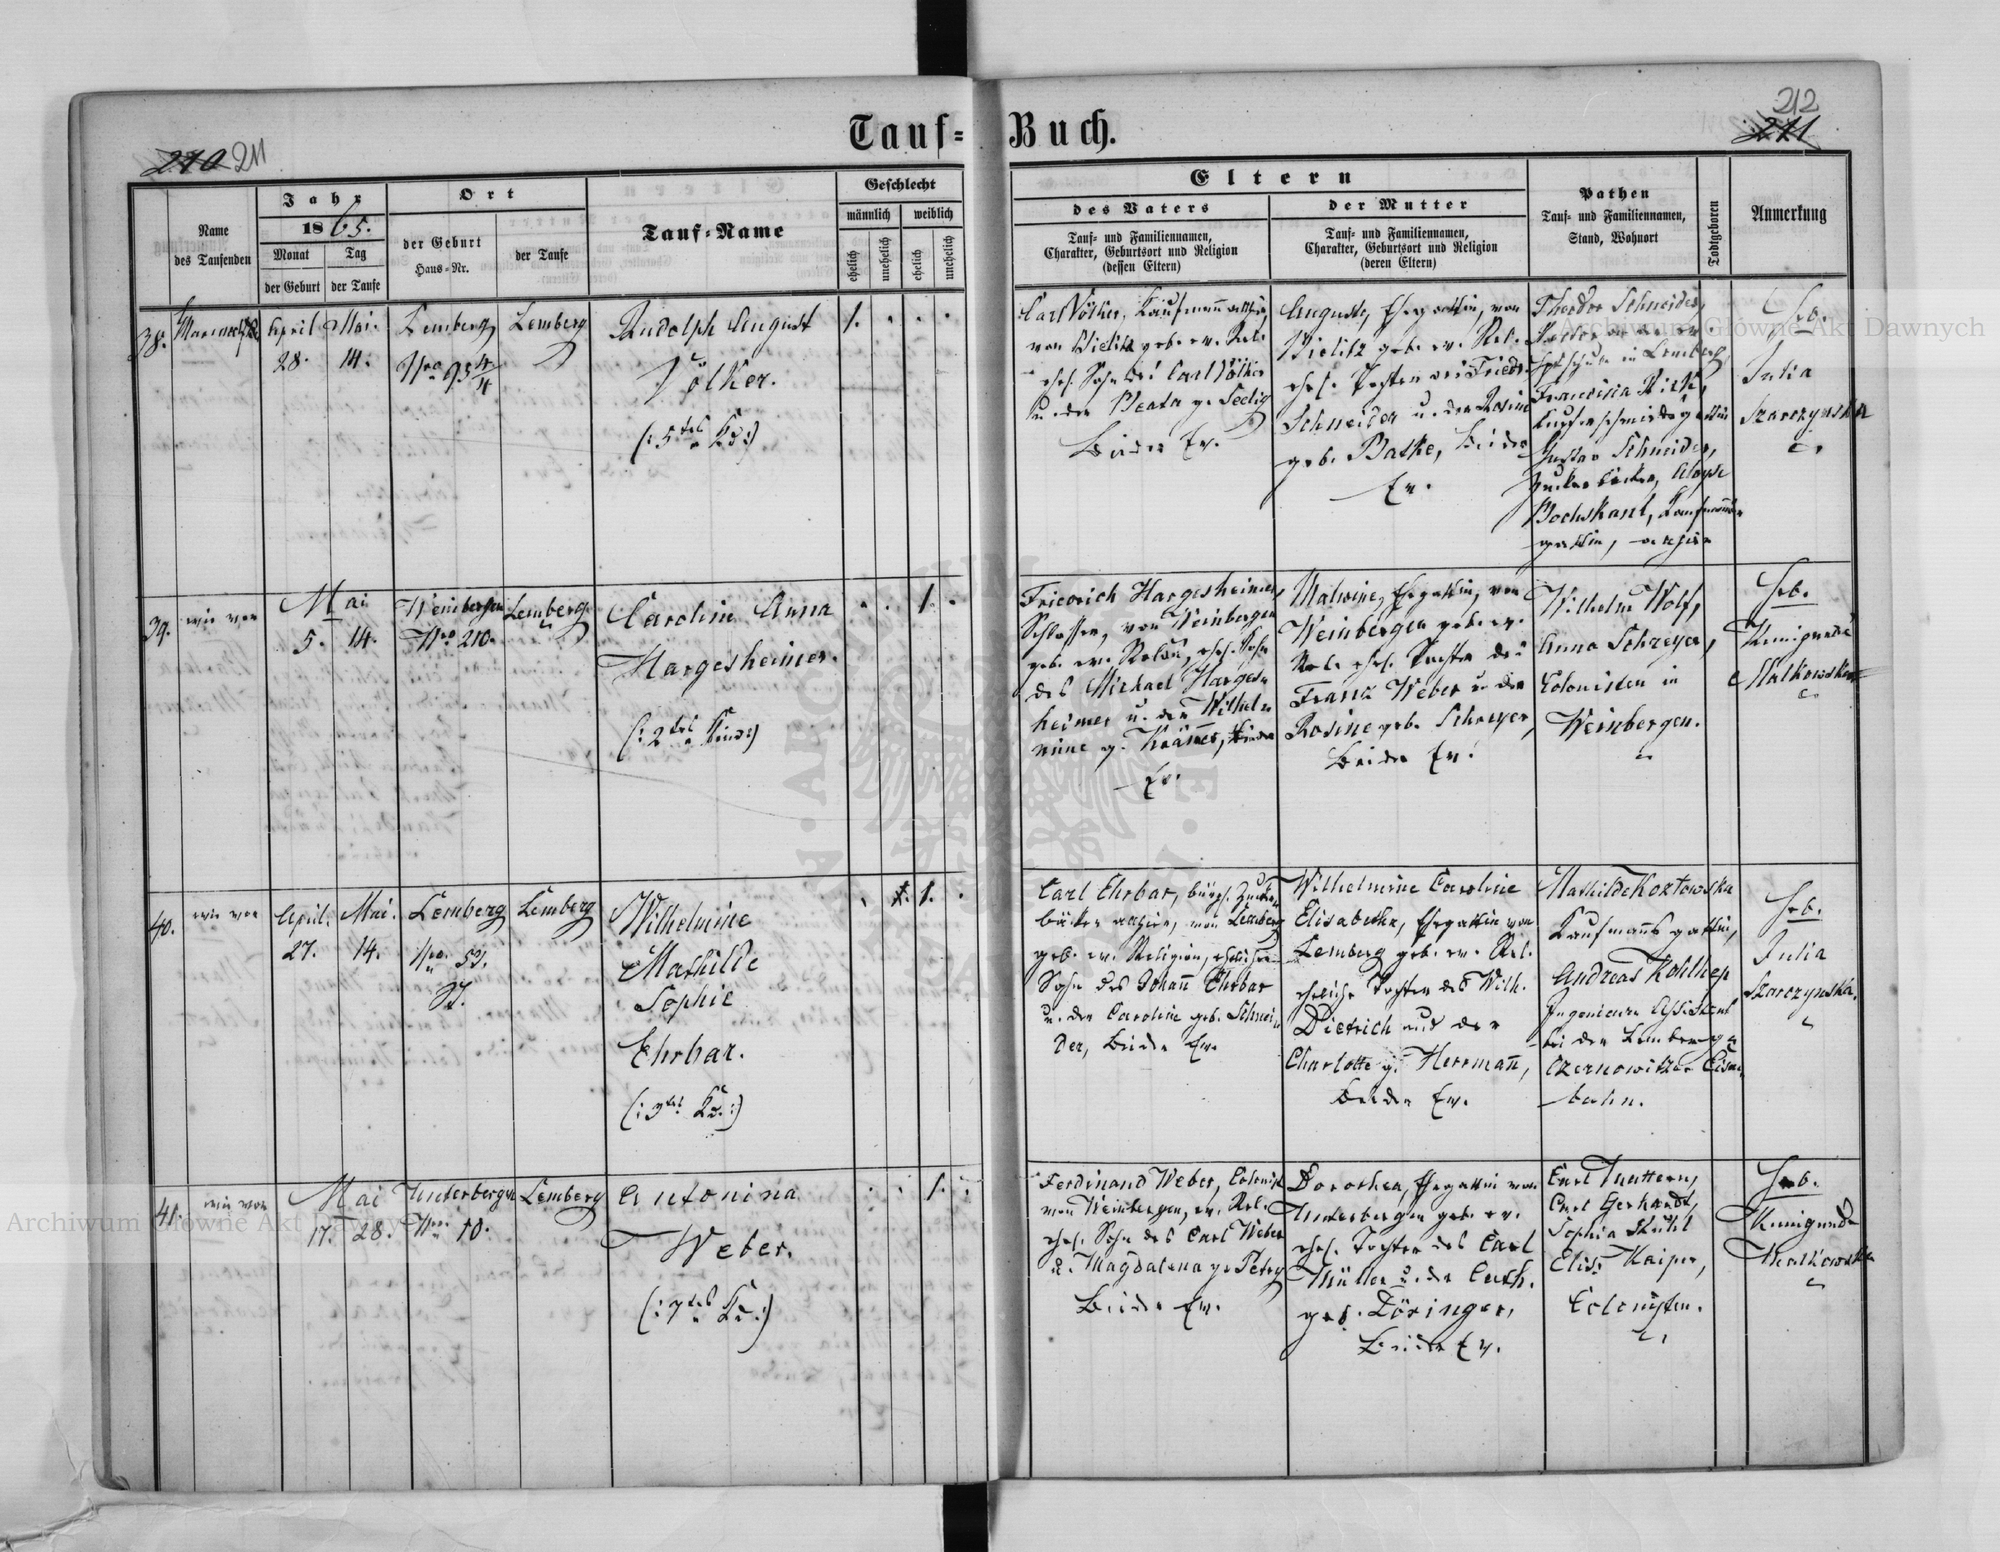 Tauf-Buch.
210 211
212
211
Name
des Taufenden
Jahr
1865.
Monat
Tag
der Geburt
der Taufe
Ort
der Geburt
Haus-Nr.
der Taufe
Tauf-Name
Geschlecht
männlich
weiblich
ehelich
unehelich
ehelich
unehelich
Eltern
des Vaters
Tauf- und Familiennamen,
Charakter, Geburtsort und Religion
(dessen Eltern)
der Mutter
Tauf- und Familiennamen,
Charakter, Geburtsort und Religion
(deren Eltern)
Pathen
Tauf- und Familiennamen,
Stand, Wohnort
Todtgeboren
Anmerkung
38.
April
28.
Mai.
14.
Lemberg
Nro 93 4/4
Lemberg
Rudolph August
Völker.
(: 5tes Kd :)
1.
Carl Völker, Kaufmann
von Bielitz geb. ev. Rel.
ehel. Sohn des Carl Völker
u. der Beata g. Seelig
Beide Ev.
Auguste, Ehegattin, von
Bielitz geb. ev. Rel.
ehel. Tochter des Friedr.
Schneider u. der Rosina
geb. Batke, Beide
Ev.
Theodor Schneider,
in Lemberg,
Francisca
Gustav Schneider,
Zuckerbäcker, Aloyse
Bochskanl, Kaufmanns
gattin,
Heb.
Julia
Szarczynska
39.
wie vor
Mai
5. 14.
Weinbergen
Nro 210.
Lemberg
Carolin Anna
Hargesheimer.
(: 2tes Kind :)
1.
Friedrich Hargesheimer,
Schlosser, von Weinbergen
geb. ev. Relig, ehel. Sohn
des Michael Harges-
heimer u. der Wilhel-
mine g. Krämer, Beide
Ev.
Malwine, Ehegattin, von
Weinbergen geb. ev.
Rel. ehel. Tochter des
Franz Weber u. der
Rosine geb. Schreyer,
Beide Ev.
Wilhelm Wolf,
Anna Schreyer,
Colonisten in
Weinbergen.
Heb.
Kunigunde
Malkowska
40.
wie vor
April.
27.
Mai.
14.
Lemberg
Nro. 53.
Lemberg
Wilhelmine
Mathilde
Sophie
Ehrbar.
(: 3tes Kd. :)
1. 1.
Carl Ehrbar, bürgl. Zucker-
bäcker von Lemberg
geb. ev. Religion, ehelicher
Sohn des Johann Ehrbar
u. der Caroline geb. Schnei-
der, Beide Ev.
Wilhelmine Caroline
Elisabetha, Ehegattin von
Lemberg geb. ev. Rel.
eheliche Tochter des Wilh.
Dietrich und der
Charlotte g. Herrmann,
Beide Ev.
Mathilde Koztowska
Kaufmanns gattin,
Andreas Kohlhep
Ingenieur Assistent
bei der Lemberg-
Czernowitzer Eisen-
bahn.
Heb.
Julia
Szarczynska.
41.
wie vor
Mai
17. 28.
Unterbergen
Nro 10.
Lemberg
Antonina
Weber.
(: 7tes Kd :)
1.
Ferdinand Weber, Colonist
von Weinbergen, ev. Rel.
ehel. Sohn des Carl Weber
u. Magdalena g. Petry
Beide Ev.
Dorothea, Ehegattin von
Unterbergen geb. ev.
ehel. Tochter des Carl
Müller u. der Cath.
geb. Döringer,
Beide Ev.
Carl Muttern,
Carl Gerhardt,
Sophia
Elise Keiper,
Colonisten.
Heb.
Kunigunde
Malkowska
Archiwum Główne Akt Dawnych
Archiwum Główne Akt Dawnych